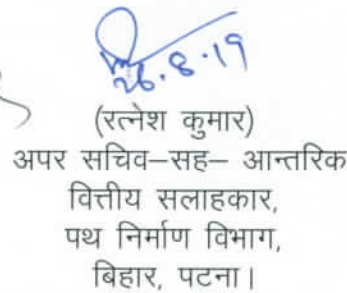 26.8.19
(रत्नेश कुमार)
अपर सचिव–सह– आन्तरिक
वित्तीय सलाहकार,
पथ निर्माण विभाग,
बिहार, पटना।